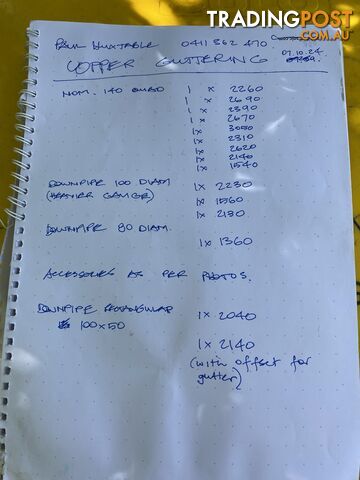 TRADINGPOST
.COM.AU
PAUL HUXTABLE 0411 362 470
07.10.24
COPPER GUTTERING
NOM. 140 QUAD 1 x 2260
1 x 2690
1x 2390
1x 2670
1x 3050
1x 2310
1x 2620
1x 2140
1x 1540
DOWNPIPE 100 DIAM 1x 2230
(HEAVIER GAUGE) 1x 1560
1x 2180
DOWNPIPE 80 DIAM.
1x 1360
ACCESSORIES AS PER PHOTOS.
DOWNPIPE RECTANGULAR 1x 2040
100x50
1x 2140
(with offset for
gutter)